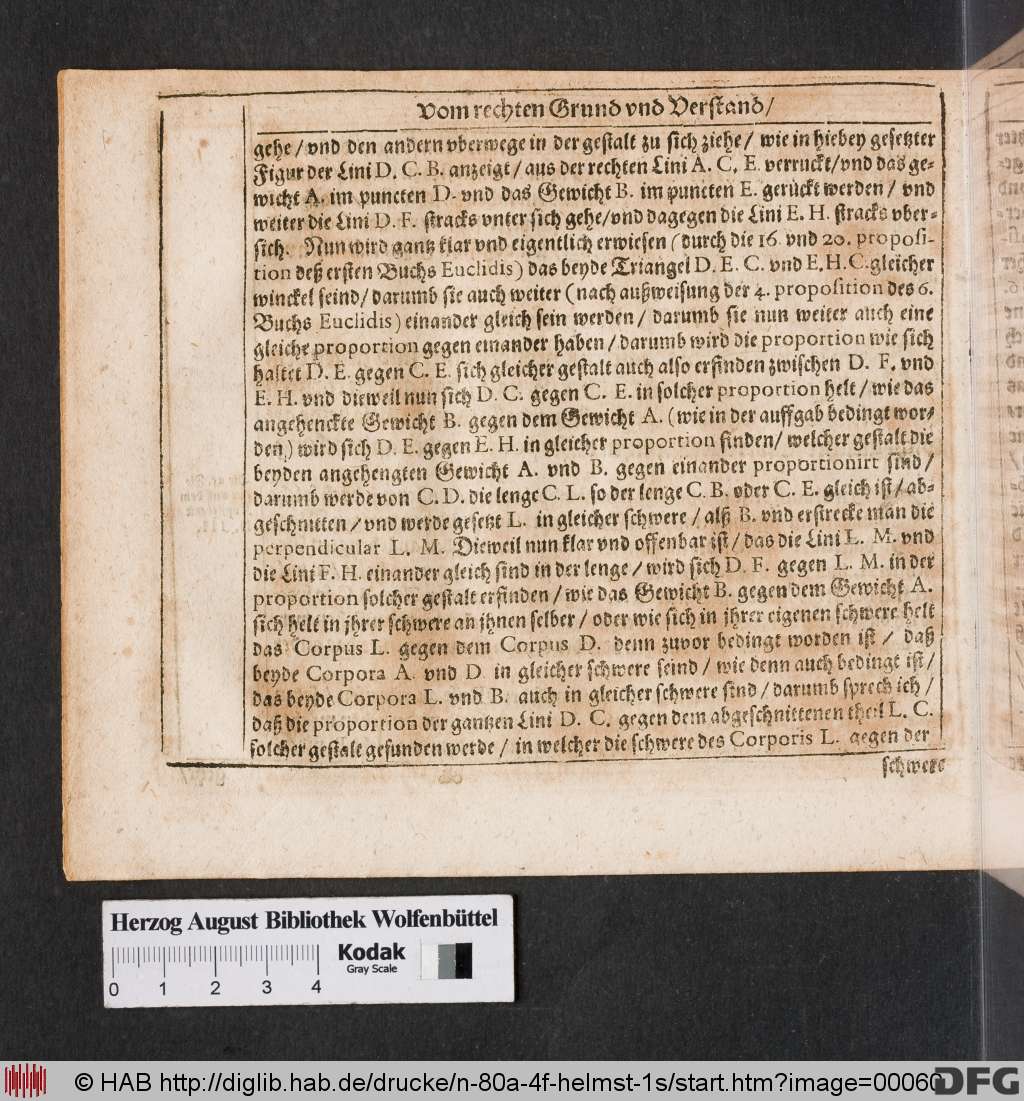 Vom rechten Grund vnd Verstand/
gehe/vnd den andern vberwege in der gestalt zu sich ziehe/ wie in hiebey gesetzter
Figur der Lini D. C. B. anzeigt/aus der rechten Lini A. C. E. verruckt/vnd das ge-
wicht A. im puncten D. vnd das Gewicht B. im puncten E. gerückt werden/ vnd
weiter die Lini D. F. stracks vnter sich gehe/vnd dagegen die Lini E. H. stracks vber-
sich. Nun wird gantz klar vnd eigentlich erwiesen (durch die 16. vnd 20. proposi-
tion deß ersten Buchs Euclidis) das beyde Triangel D. E. C. vnd E. H. C. gleicher
winckel seind/darumb sie auch weiter (nach außweisung der 4. proposition des 6.
Buchs Euclidis) einander gleich sein werden/ darumb sie nun weiter auch eine
gleiche proportion gegen einander haben/darumb wird die proportion wie sich
haltet D. E. gegen C. E. sich gleicher gestalt auch also erfinden zwischen D. F. vnd
E. H. vnd dieweil nun sich D. C. gegen C. E. in solcher proportion helt/wie das
angehenckte Gewicht B. gegen dem Gewicht A. (wie in der auffgab bedingt wor-
den) wird sich D. E. gegen E. H. in gleicher proportion finden/ welcher gestalt die
beyden angehengten Gewicht A. vnd B. gegen einander proportionirt sind/
darumb werde von C. D. die lenge C. L. so der lenge C. B. oder C. E. gleich ist/ab-
geschnitten/vnd werde gesetzt L. in gleicher schwere/alß B. vnd erstrecke man die
perpendicular L. M. Dieweil nun klar vnd offenbar ist/das die Lini L. M. vnd
die Lini F. H. einander gleich sind in der lenge/wird sich D. F. gegen L. M. in der
proportion solcher gestalt erfinden/wie das Gewicht B. gegen dem Gewicht A.
sich helt in jhrer schwere an jhnen selber/oder wie sich in jhrer eigenen schwere helt
das Corpus L. gegen dem Corpus D. denn zuvor bedingt worden ist/ daß
beyde Corpora A. vnd D in gleicher schwere seind/wie denn auch bedingt ist/
das beyde Corpora L. vnd B. auch in gleicher schwere sind/darumb sprech ich/
daß die proportion der gantzen Lini D. C. gegen dem abgeschnittenen theil L. C.
solcher gestalt gefunden werde/ in welcher die schwere des Corporis L. gegen der
schwere
Herzog August Bibliothek Wolfenbüttel
Kodak
Gray Scale
0 1 2 3 4
© HAB http://diglib.hab.de/drucke/n-80a-4f-helmst-1s/start.htm?image=00060
DFG